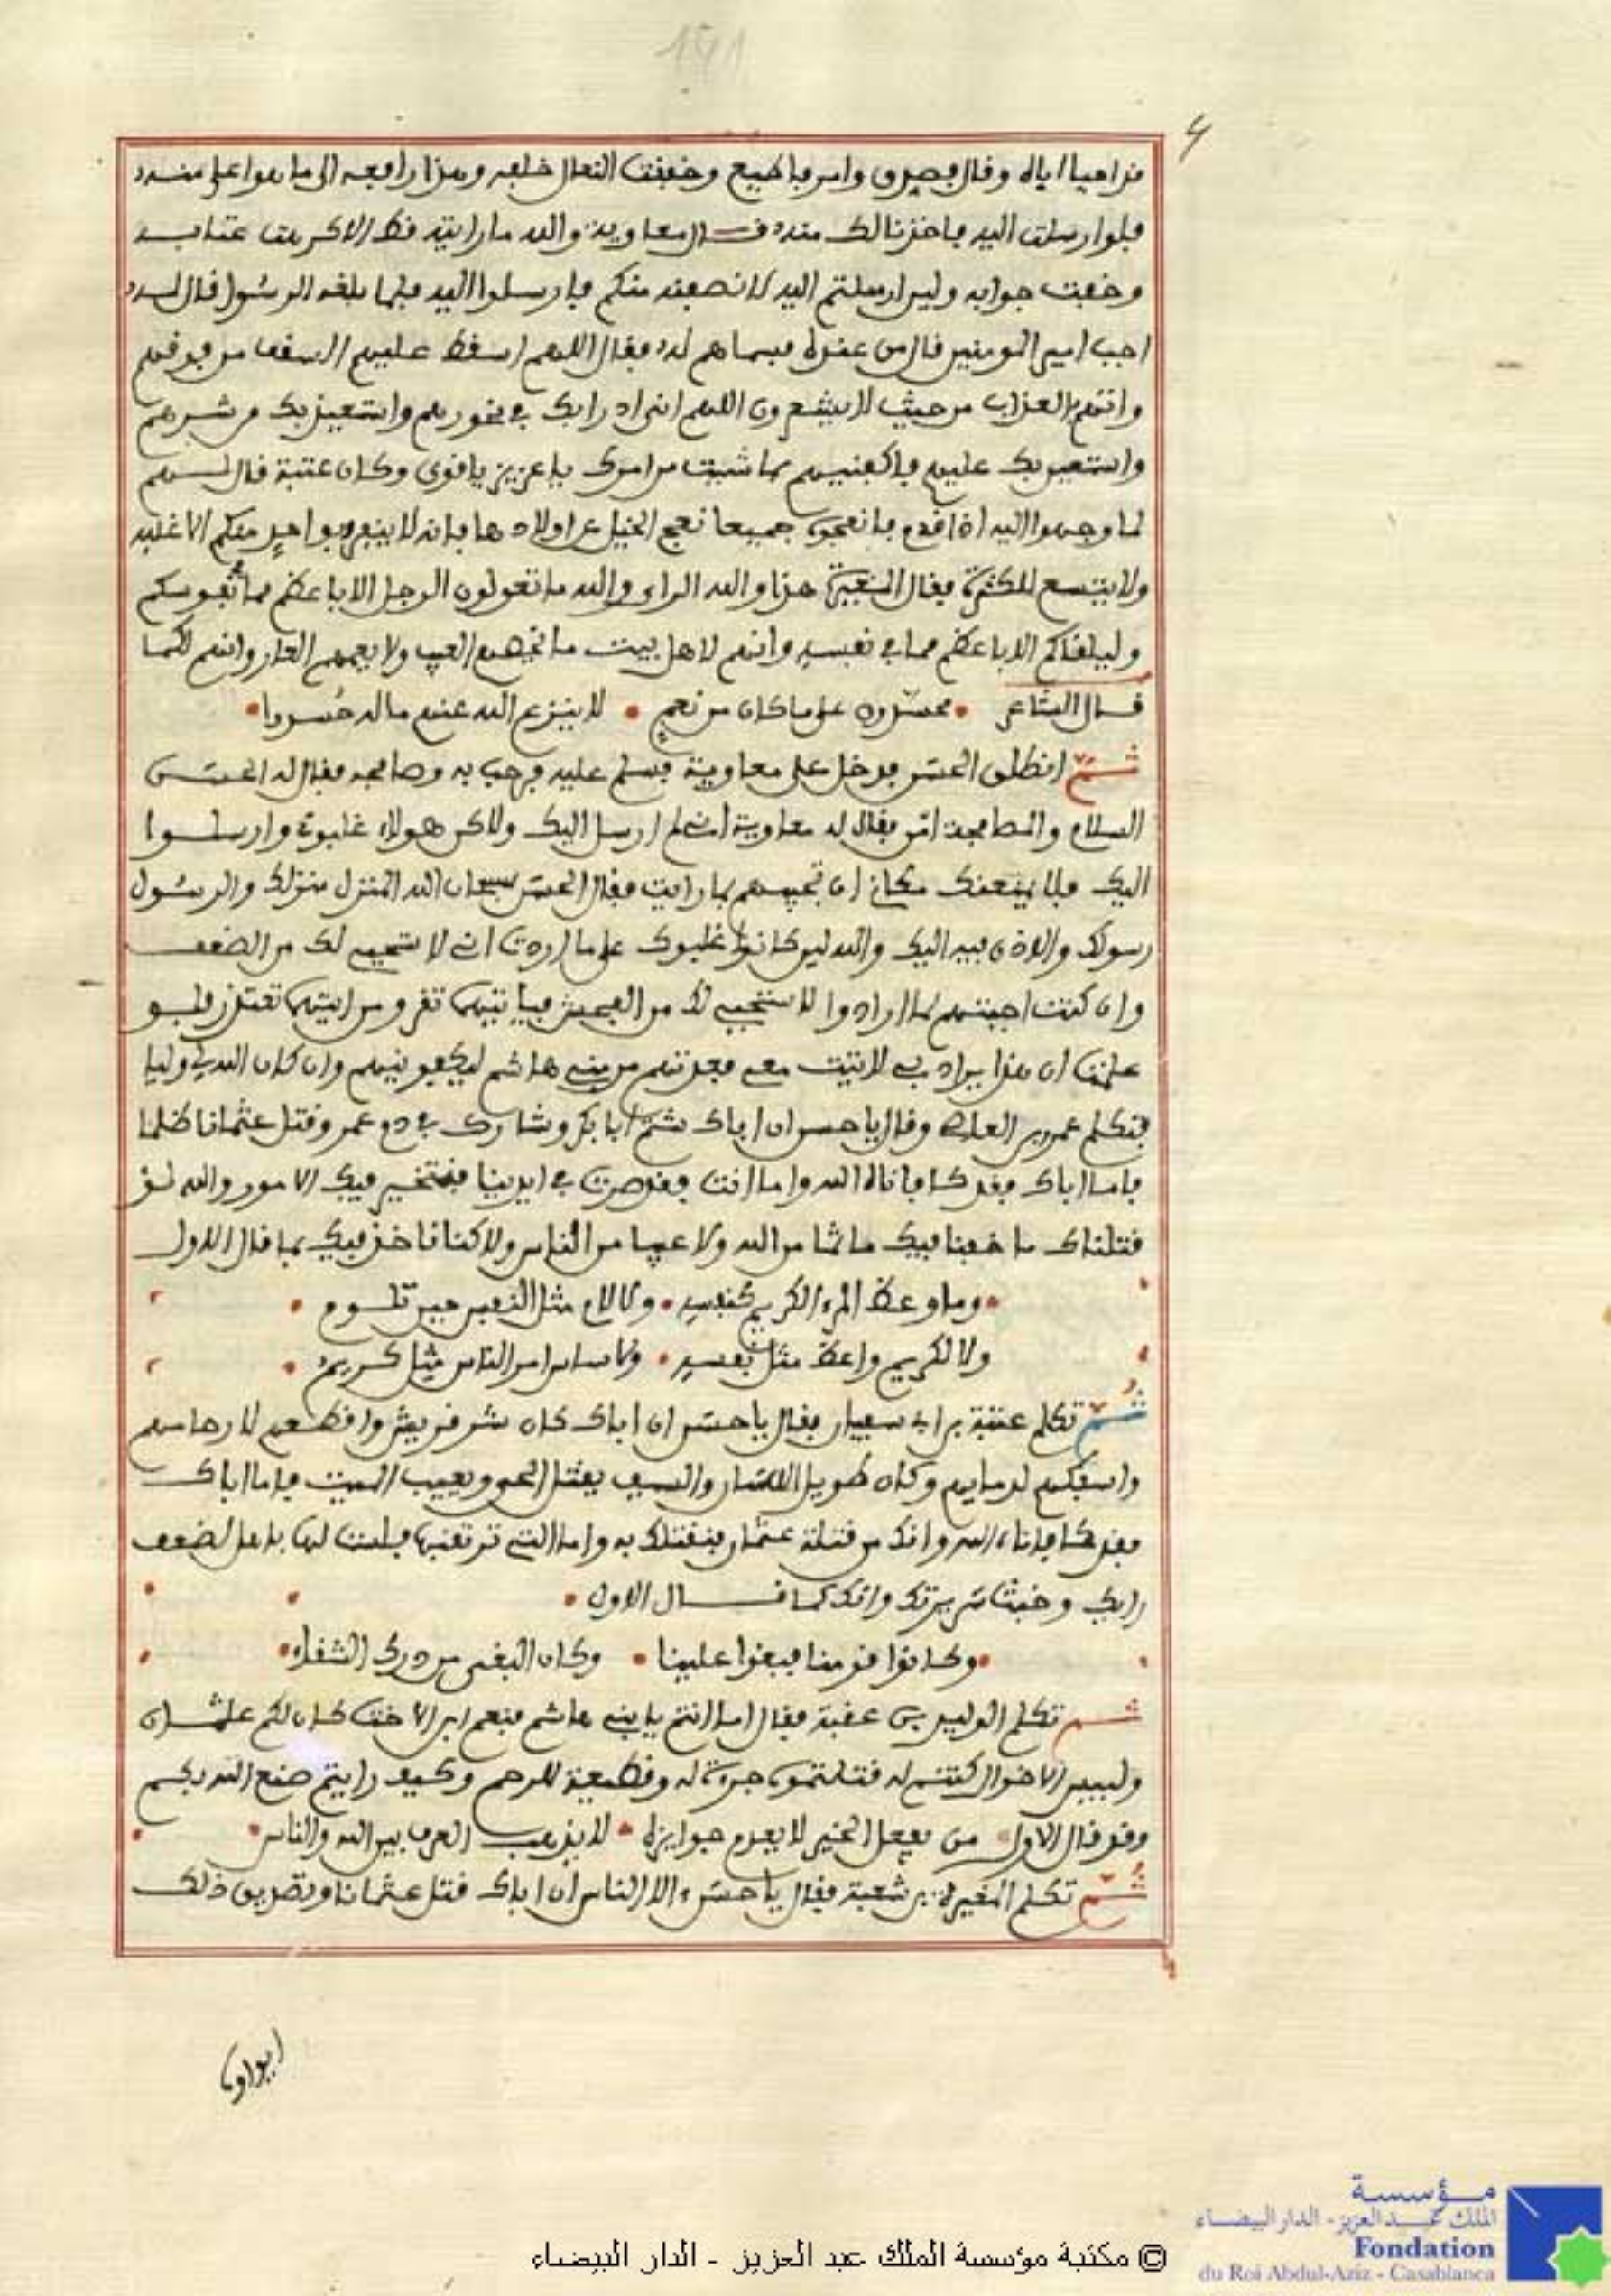 4
قد احيا اباه وقال فصدق وامر فاطيع وخفقت النعال خلفه وهذا رافعه الى ما هوا اعلى منه
فلوا رسلت اليه فاخذنا لك منه قال معاوية والله ما رايته قط الا كرهت عتابه
وخفت جوابه ولين ارسلتم اليه لانصفنه منكم فارسلوا اليه فلما بلغه الرسول قال له
اجب امير المومنين قال من عنده فسماهم له فقال اللهم اسقط عليهم السقف من فوقهم
واتهم العذاب من حيث لا يشعرون اللهم اني ادرا بك في نحورهم واستعيذ بك من شرهم
واستعين بك عليهم فاكفنيهم بما شيت من امرك يا عزيز يا قوي وكان عتبة قال لهم
لما وجهوا اليه اذا قدم جميعا الخيل عن اولادها فانه لا ينفرد بواحد منكم الا غلبه
ولا يتسع للكثرة فقال المغيرة هذا والله الراي والله ما تقولون الرجل الا باعظم مما في نفوسكم
وليلقاكم الا باعظم مما في نفسه وانهم لاهل بيت العيب ولا يعمهم العار وانهم لكما
قال الشاعر محسدون على ما كان من نعم لا ينزع الله عنهم ماله حسدوا
ثم انطلق الحسن فدخل على معاوية فسلم عليه فرحب به وصافحه فقال له الحسن
السلام والمصافحة امن فقال له معاوية اني لم ارسل اليك ولاكن هولاء غلبوني وارسلوا
اليك فلا يمنعنك مكاني ان تجيبهم بما رايت فقال الحسن سبحان الله المنزل منزلك والرسول
رسولك والاذن فيه اليك والله لين كانوا غلبوك على ما اردت اني لاستحيي لك من الضعف
وان كنت اجبتهم لما ارادوا لاستحيي لك من الفحش فبايتيهما تقر ومن ايتهما تعتذر فلو
علمت ان هذا يراد بي لاتيت معي بعدتهم من بني هاشم ليكفونيهم وان كان الله لي وليا
فتكلم عمرو بن العاص وقال يا حسن ان اباك شتم ابا بكر وشارك في دم عمر وقتل عثمانا ظلما
فاما اباك فقد كفاناه الله واما انت فقد صرت في ايدينا فنتخير فيك الامور والله لو
قتلناك ما خفنا فيك ماثما من الله ولا عيبا من الناس ولاكننا ناخذ فيك بما قال الاول
وما وعظ المرء الكريم كنفسه ولا لام مثل النفس حين تلوم
ولا لكريم واعظ مثل نفسه ولا ساس امر الناس مثل كريم
ثم تكلم عتبة بن ابي سفيان فقال يا حسن ان اباك كان شر قريش واقطعهم لارحامهم
واسفكهم لدمايهم وكان طويل اللسان والسيف يقتل الحي ويعيب الميت فاما اباك
فقد كفاناه الله وانك من قتلة عثمان فنقتلك به واما التي ترتقبها فلست لها باهل لضعف
رايك وخبث سريرتك وانك كما قال الاول
وكانوا قومنا فبغوا علينا وكان البغي من درك الشقاء
ثم تكلم الوليد بن عقبة فقال اما انتم يا بني هاشم فنعم ابن الاخت كان لكم عثمان
ولبيس الاخوال كنتم له قتلتموه جرءة له وقطيعة للرحم وكيف رايتم صنع الله بكم
وقد قال الاول من يفعل الخير لا يعدم جوايزه لا يذهب العرف بين الله والناس
ثم تكلم المغيرة بن شعبة فقال يا حسن الا ان الناس ان اباك قتل عثمانا وتصديق ذلك
مؤسسة
الملك عبد العزيز - الدار البيضاء
Fondation
du Roi Abdul-Aziz - Casablanca
© مكتبة مؤسسة الملك عبد العزيز - الدار البيضاء